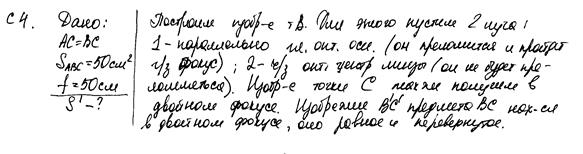 С4. Дано:
AC=BC
S_ABC=50см²
f=50см
S'-?
Построим изобр-е т.В. Для этого пустим 2 луча:
1-параллельно гл. опт. оси. (он преломится и пройдёт
ч/з фокус); 2-ч/з опт. центр линзы (он не будет пре-
ломляться). Изобр-е точки С также получим в
двойном фокусе. Изобрение B'C' предмета BC нах-ся
в двойном фокусе, оно равное и перевернутое.